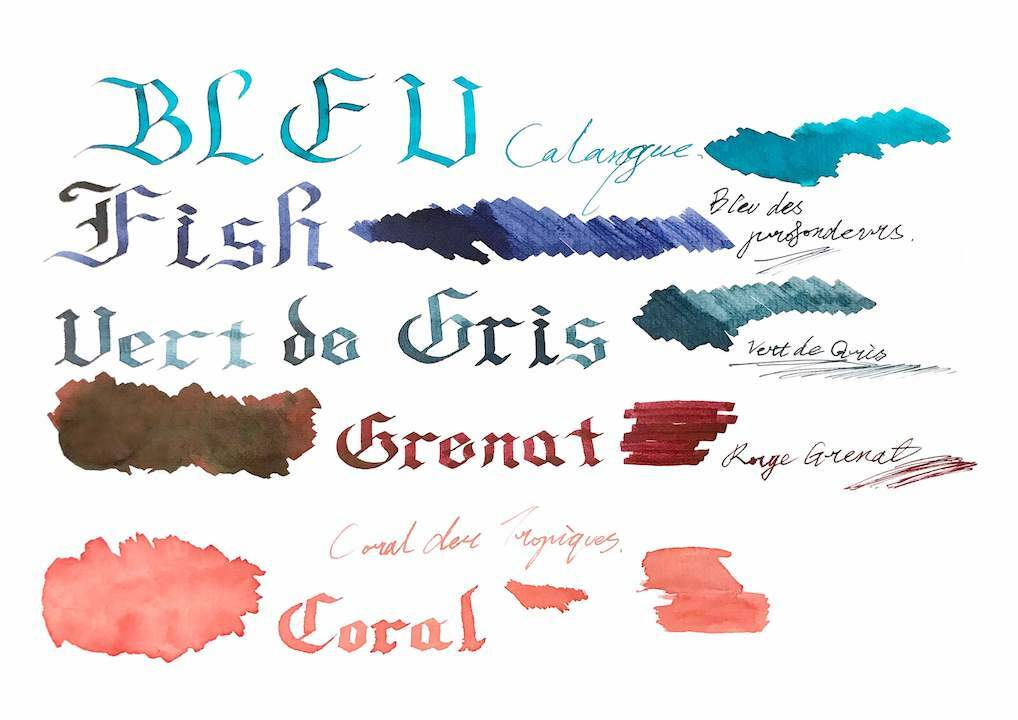 BLEU Calangue.
Fish Bleu des
profondeurs.
Vert de Gris
Vert de Gris
Grenat Rouge Grenat
Coral des Tropiques.
Coral